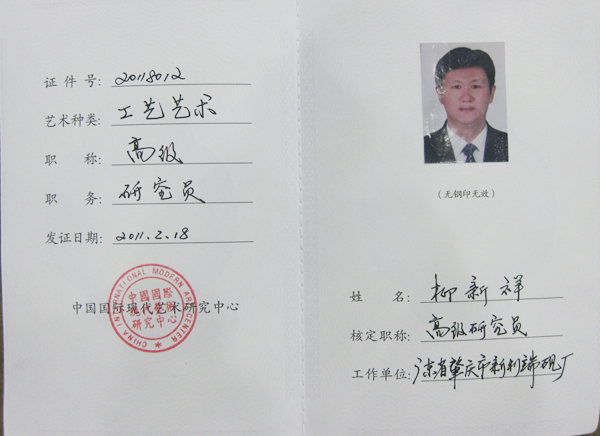 证件号: 2018012
艺术种类: 工艺艺术
职称: 高级
职务: 研究员
发证日期: 2011.2.18
中国国际现代艺术研究中心
CHINA INTERNATIONAL MODERN ART CENTER
中國國際
研究中心
(无钢印无效)
姓名: 柳新祥
核定职称: 高级研究员
工作单位: 广东省肇庆市新利端砚厂